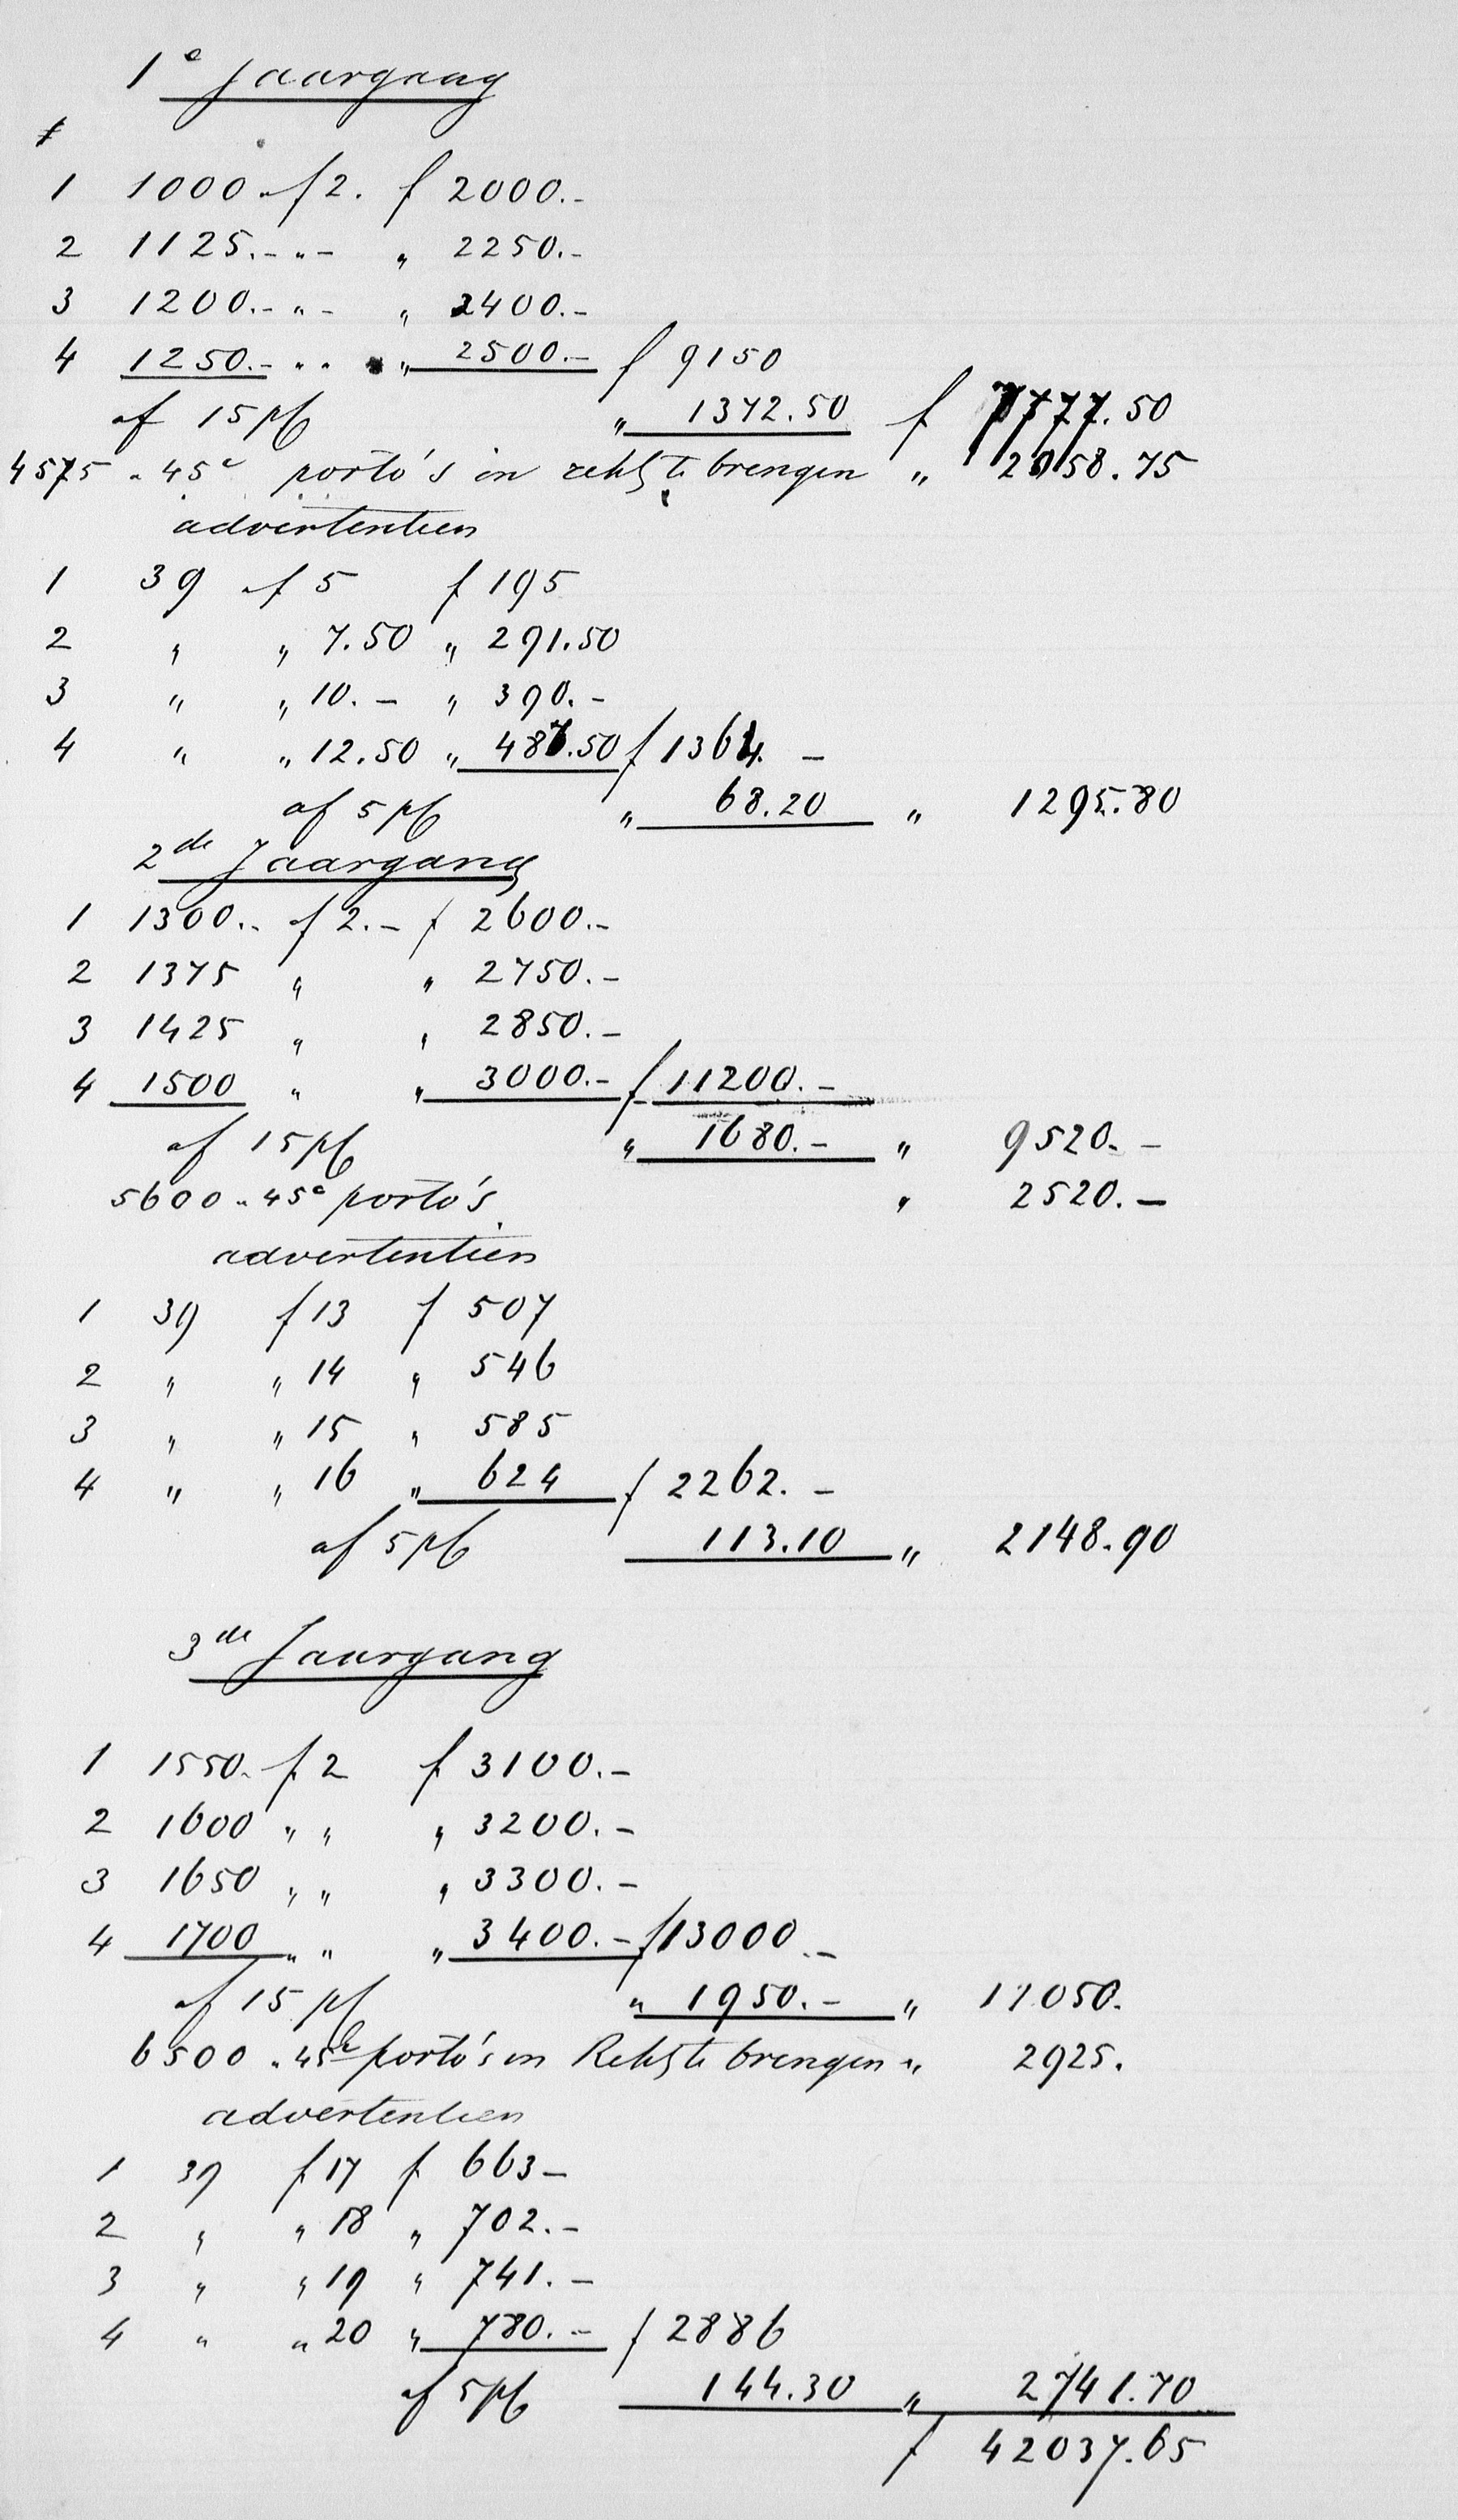 1e Jaargang
f
1 1000 a f 2. f 2000.-
2 1125.- " - " 2250.-
3 1200.- " - " 2400.-
4 1250.- " " " 2500.- f 9150
af 15 pCt " 1372.50 f 7777.50
4575 a 45c porto's in rek. te brengen " 2058.75
advertentien
1 39 a f 5 f 195
2 " " 7.50 " 291.50
3 " " 10.- " 390.-
4 " " 12.50 " 487.50 f 1364.-
af 5 pCt " 68.20 " 1295.80
2de Jaargang
1 1300.. a f 2.- f 2600.-
2 1375 " " 2750.-
3 1425 " " 2850.-
4 1500 " " 3000.- f 11200.-
af 15 pCt " 1680.- " 9520.-
5600 a 45c porto's " 2520.-
advertentien
1 39 f 13 f 507
2 " " 14 " 546
3 " " 15 " 585
4 " " 16 " 624 f 2262.-
af 5 pCt 113.10 " 2148.90
3de Jaargang
1 1550. f 2 f 3100.-
2 1600 " " " 3200.-
3 1650 " " " 3300.-
4 1700 " " " 3400.- f 13000.-
af 15 pCt " 1950.- " 11050.
6500 a 45c porto's in Rek. te brengen " 2925.
advertentien
1 39 f 17 f 663-
2 " " 18 " 702.-
3 " " 19 " 741.-
4 " " 20 " 780.- f 2886
af 5 pCt 144.30 " 2741.70
f 42037.65